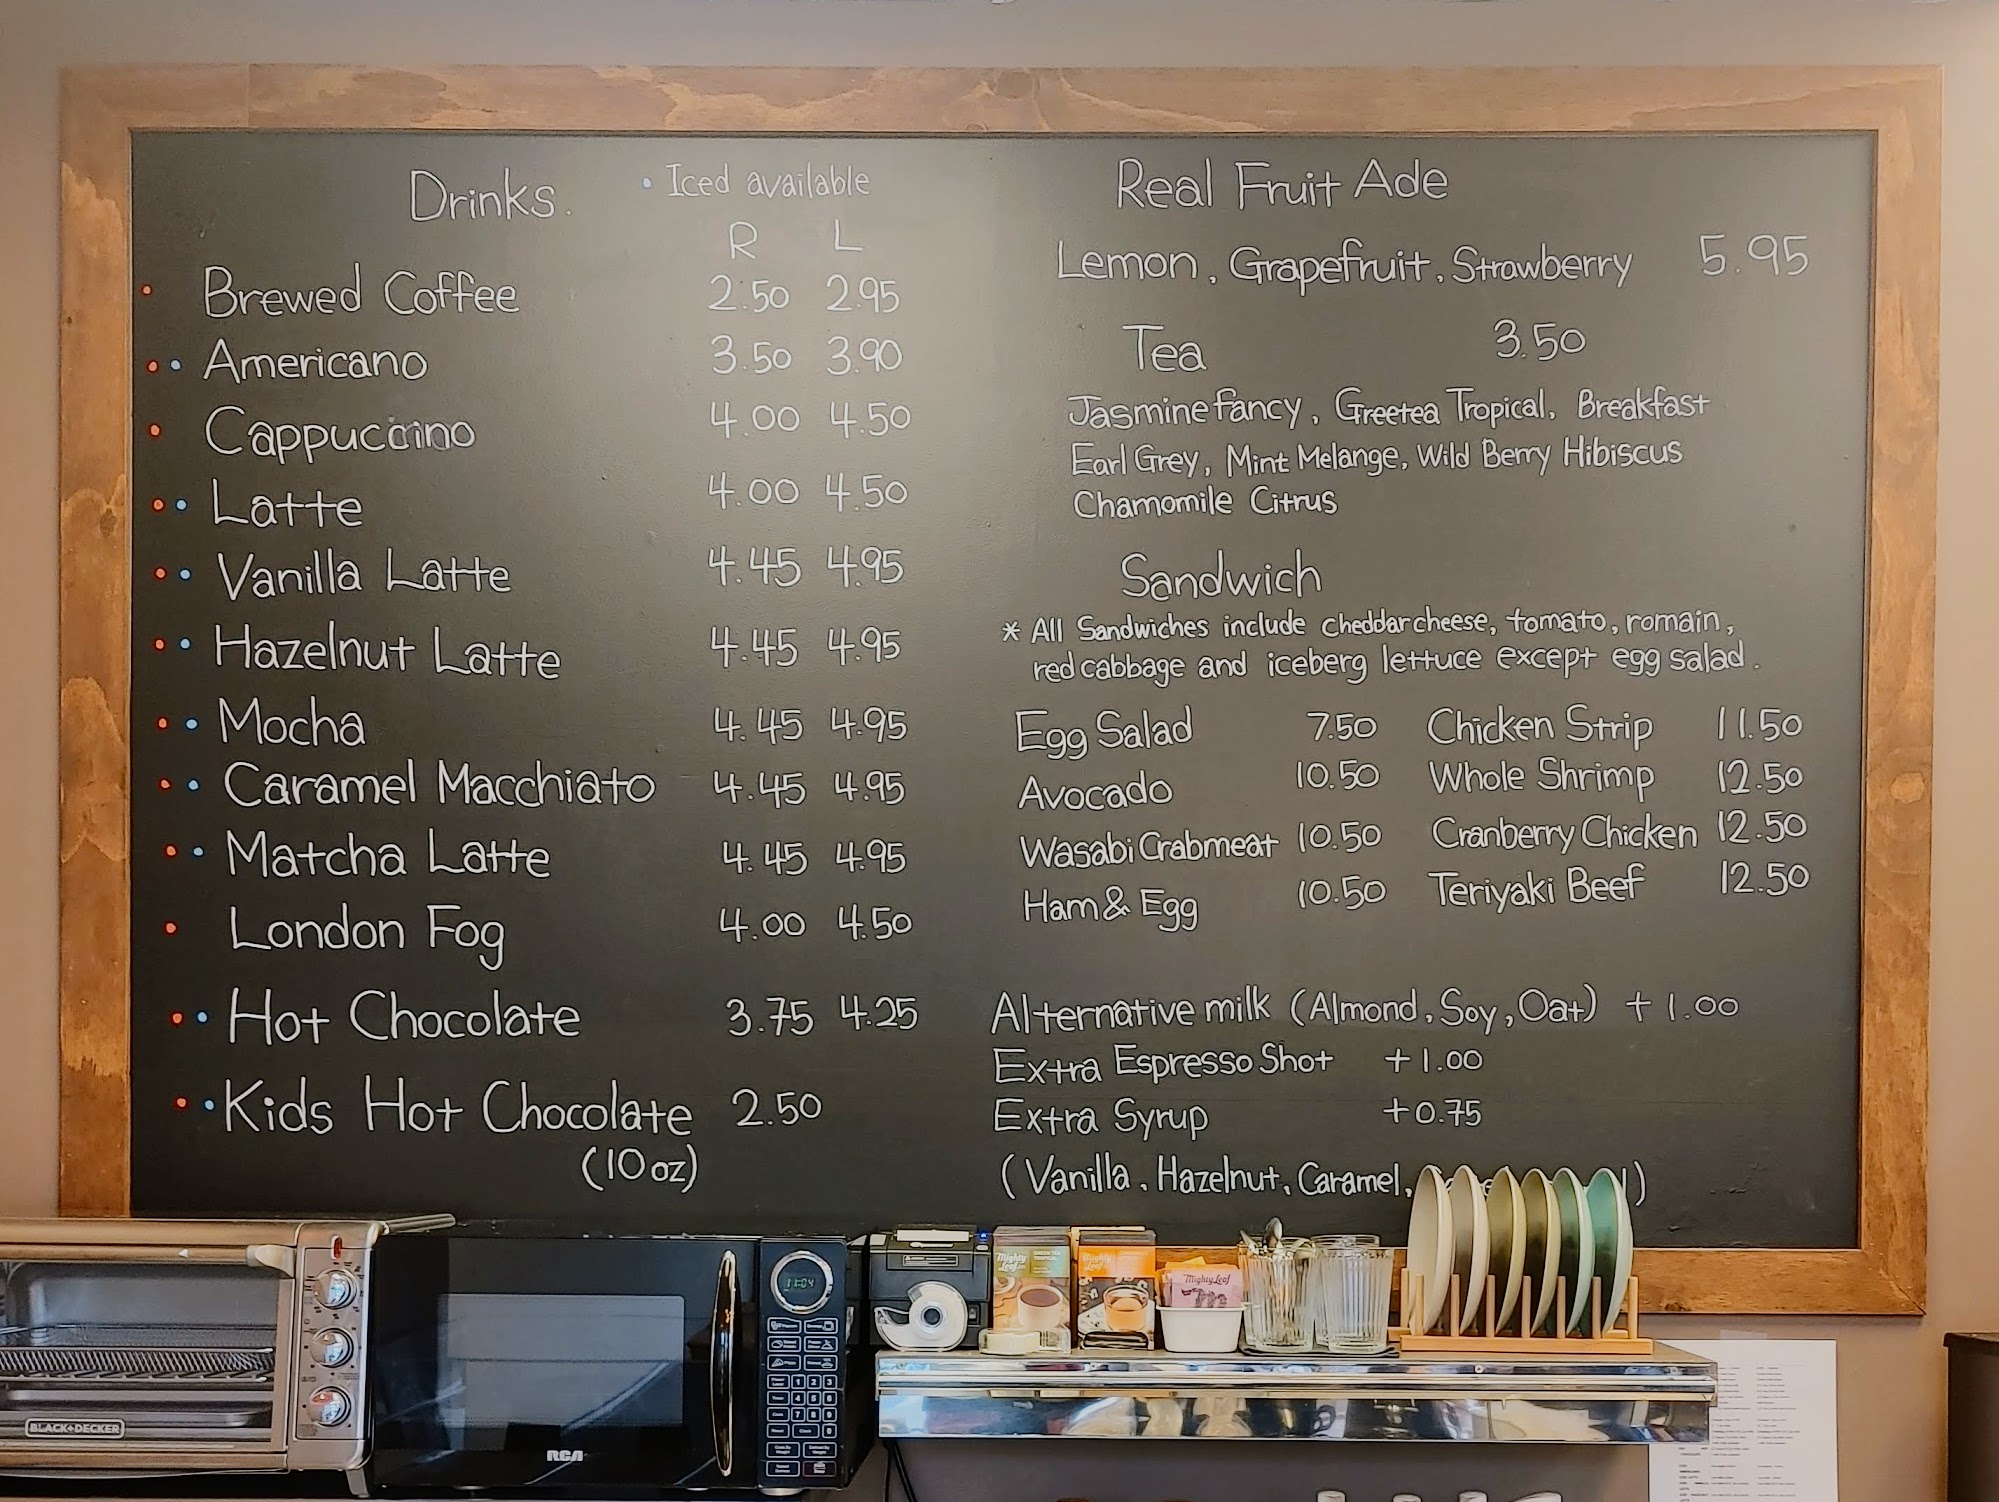 Drinks. • Iced available
R L
• Brewed Coffee 2.50 2.95
• • Americano 3.50 3.90
• Cappuccino 4.00 4.50
• • Latte 4.00 4.50
• • Vanilla Latte 4.45 4.95
• • Hazelnut Latte 4.45 4.95
• • Mocha 4.45 4.95
• • Caramel Macchiato 4.45 4.95
• • Matcha Latte 4.45 4.95
• London Fog 4.00 4.50
• • Hot Chocolate 3.75 4.25
• • Kids Hot Chocolate 2.50
(10 oz)
Real Fruit Ade
Lemon, Grapefruit, Strawberry 5.95
Tea 3.50
Jasmine fancy, Greetea Tropical, Breakfast
Earl Grey, Mint Melange, Wild Berry Hibiscus
Chamomile Citrus
Sandwich
* All Sandwiches include cheddar cheese, tomato, romain,
red cabbage and iceberg lettuce except egg salad.
Egg Salad 7.50 Chicken Strip 11.50
Avocado 10.50 Whole Shrimp 12.50
Wasabi Crabmeat 10.50 Cranberry Chicken 12.50
Ham & Egg 10.50 Teriyaki Beef 12.50
Alternative milk (Almond, Soy, Oat) + 1.00
Extra Espresso Shot + 1.00
Extra Syrup + 0.75
(Vanilla, Hazelnut, Caramel, )
BLACK+DECKER
RCA
11:04
Mighty Leaf
GREEN TEA TROPICAL
Mighty Leaf
Mighty Leaf